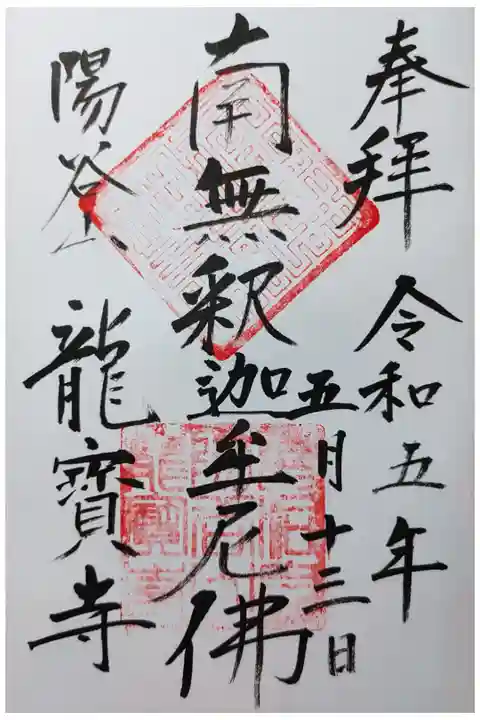 奉拜 令和五年
五月十三日
南無釈迦牟尼佛
陽谷山 龍寳寺